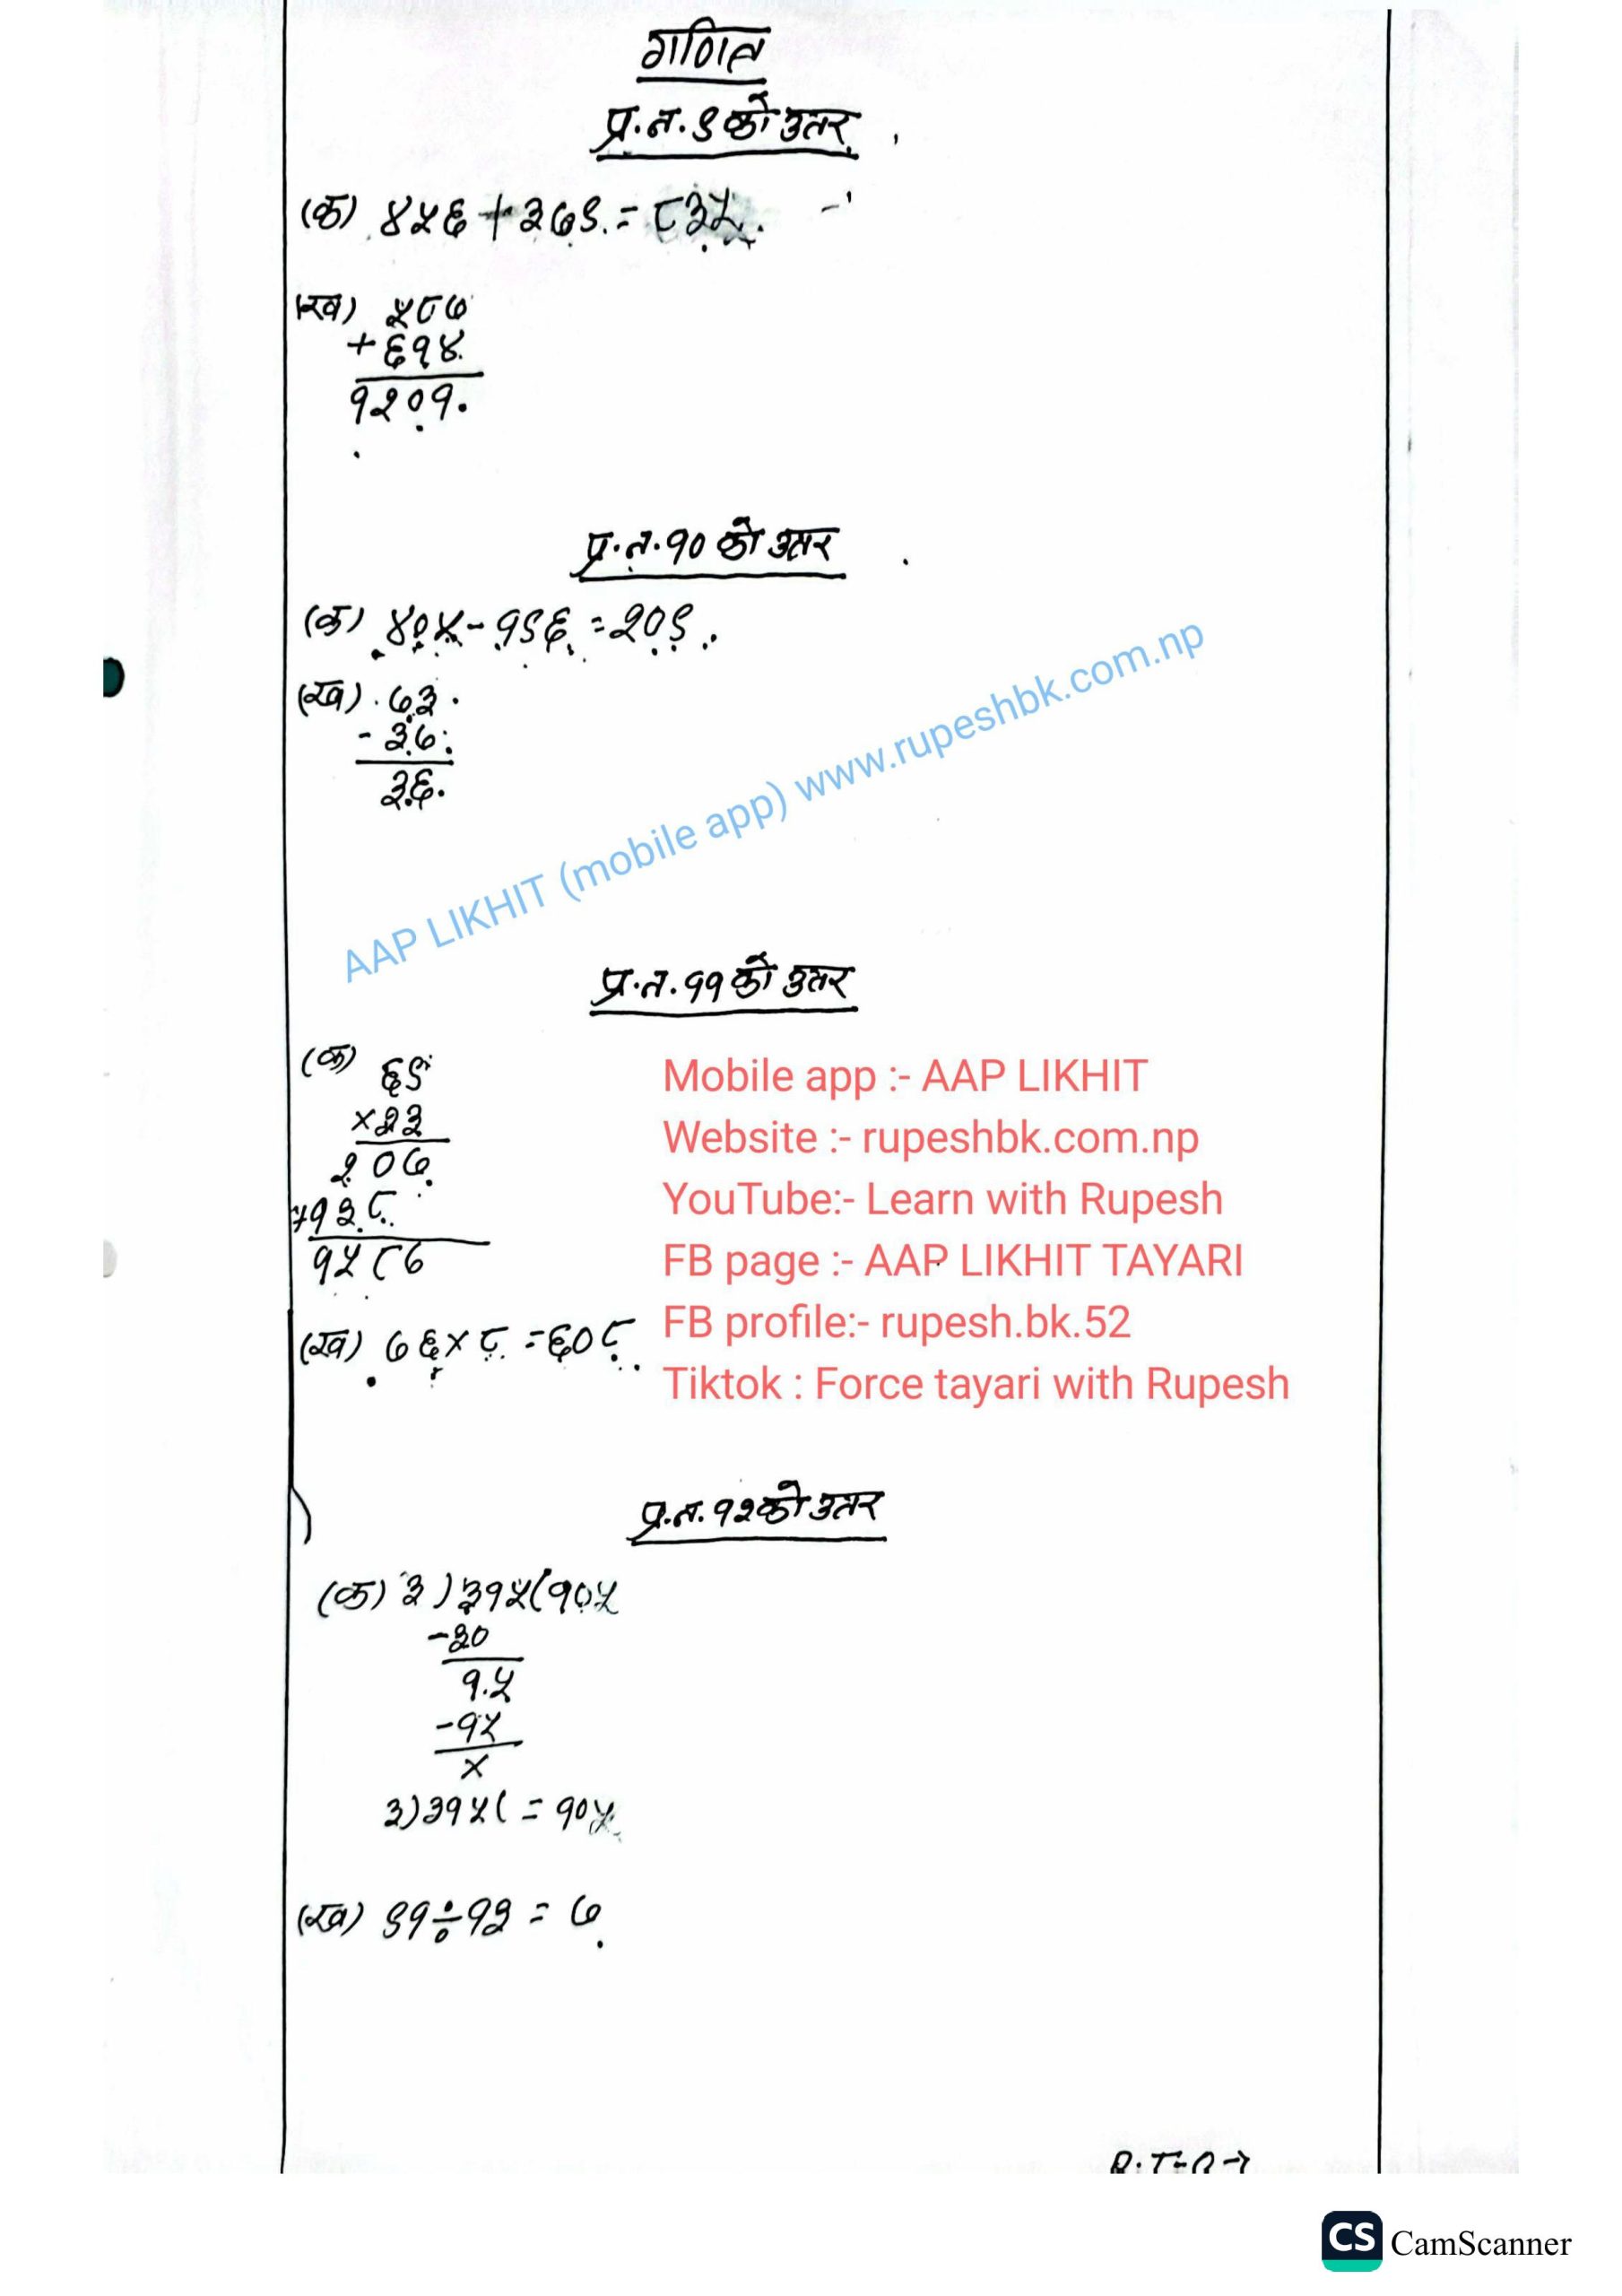 गणित
प्र.न.९ को उतर
(क) ४५६ + ३७९ = ८३५.
(ख) ५८७
+ ६१४
१२०१.
प्र.न.१० को उतर
(क) ४०५ - १९६ = २०९.
(ख) ७३
- ३७
३६.
AAP LIKHIT (mobile app) www.rupeshbk.com.np
प्र.न.११ को उतर
(क) ६९
×२३
२०७
+१३८
१५८७
(ख) ७६ × ८ = ६०८
Mobile app :- AAP LIKHIT
Website :- rupeshbk.com.np
YouTube:- Learn with Rupesh
FB page :- AAP LIKHIT TAYARI
FB profile:- rupesh.bk.52
Tiktok : Force tayari with Rupesh
प्र.न.१२ को उतर
(क) ३ ) ३१५ ( १०५
-३०
१५
-१५
×
३)३१५( = १०५
(ख) ९१ ÷ १३ = ७
CS CamScanner